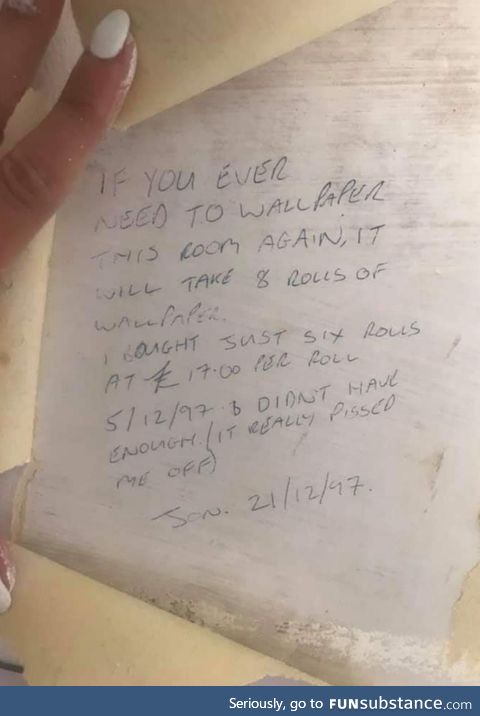 IF YOU EVER
NEED TO WALLPAPER
THIS ROOM AGAIN, IT
WILL TAKE 8 ROLLS OF
WALLPAPER.
I BOUGHT JUST SIX ROLLS
AT £17.00 PER ROLL
5/12/97 & DIDNT HAVE
ENOUGH. (IT REALLY PISSED
ME OFF)
JON. 21/12/97.
Seriously, go to FUNsubstance.com